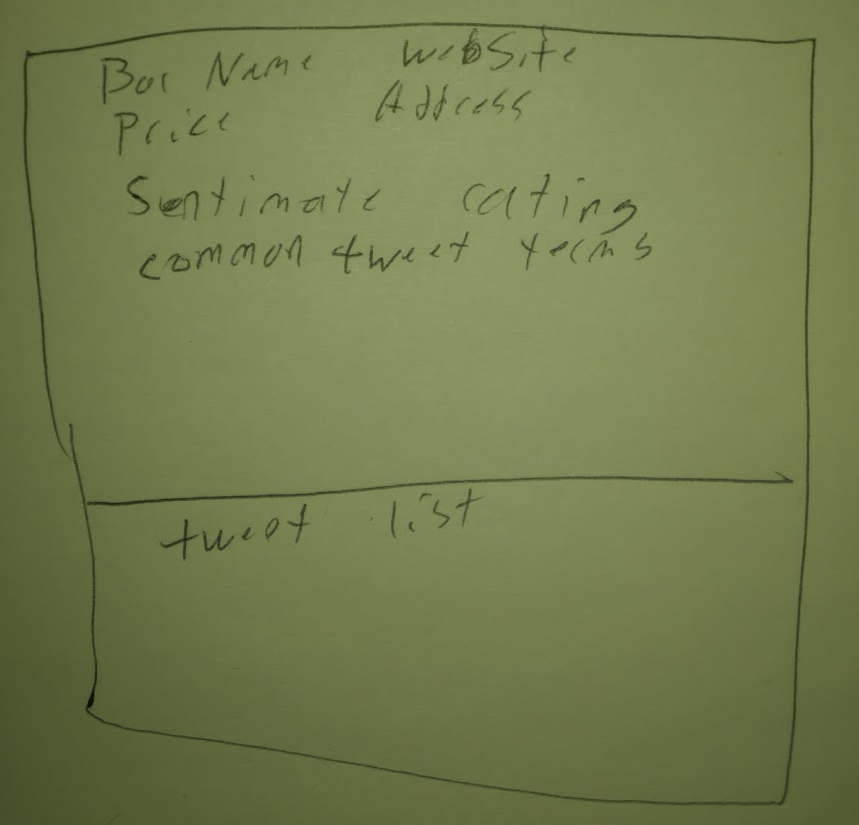 Bar Name website
Price Address
Sentimate rating
common tweet terms
tweet list